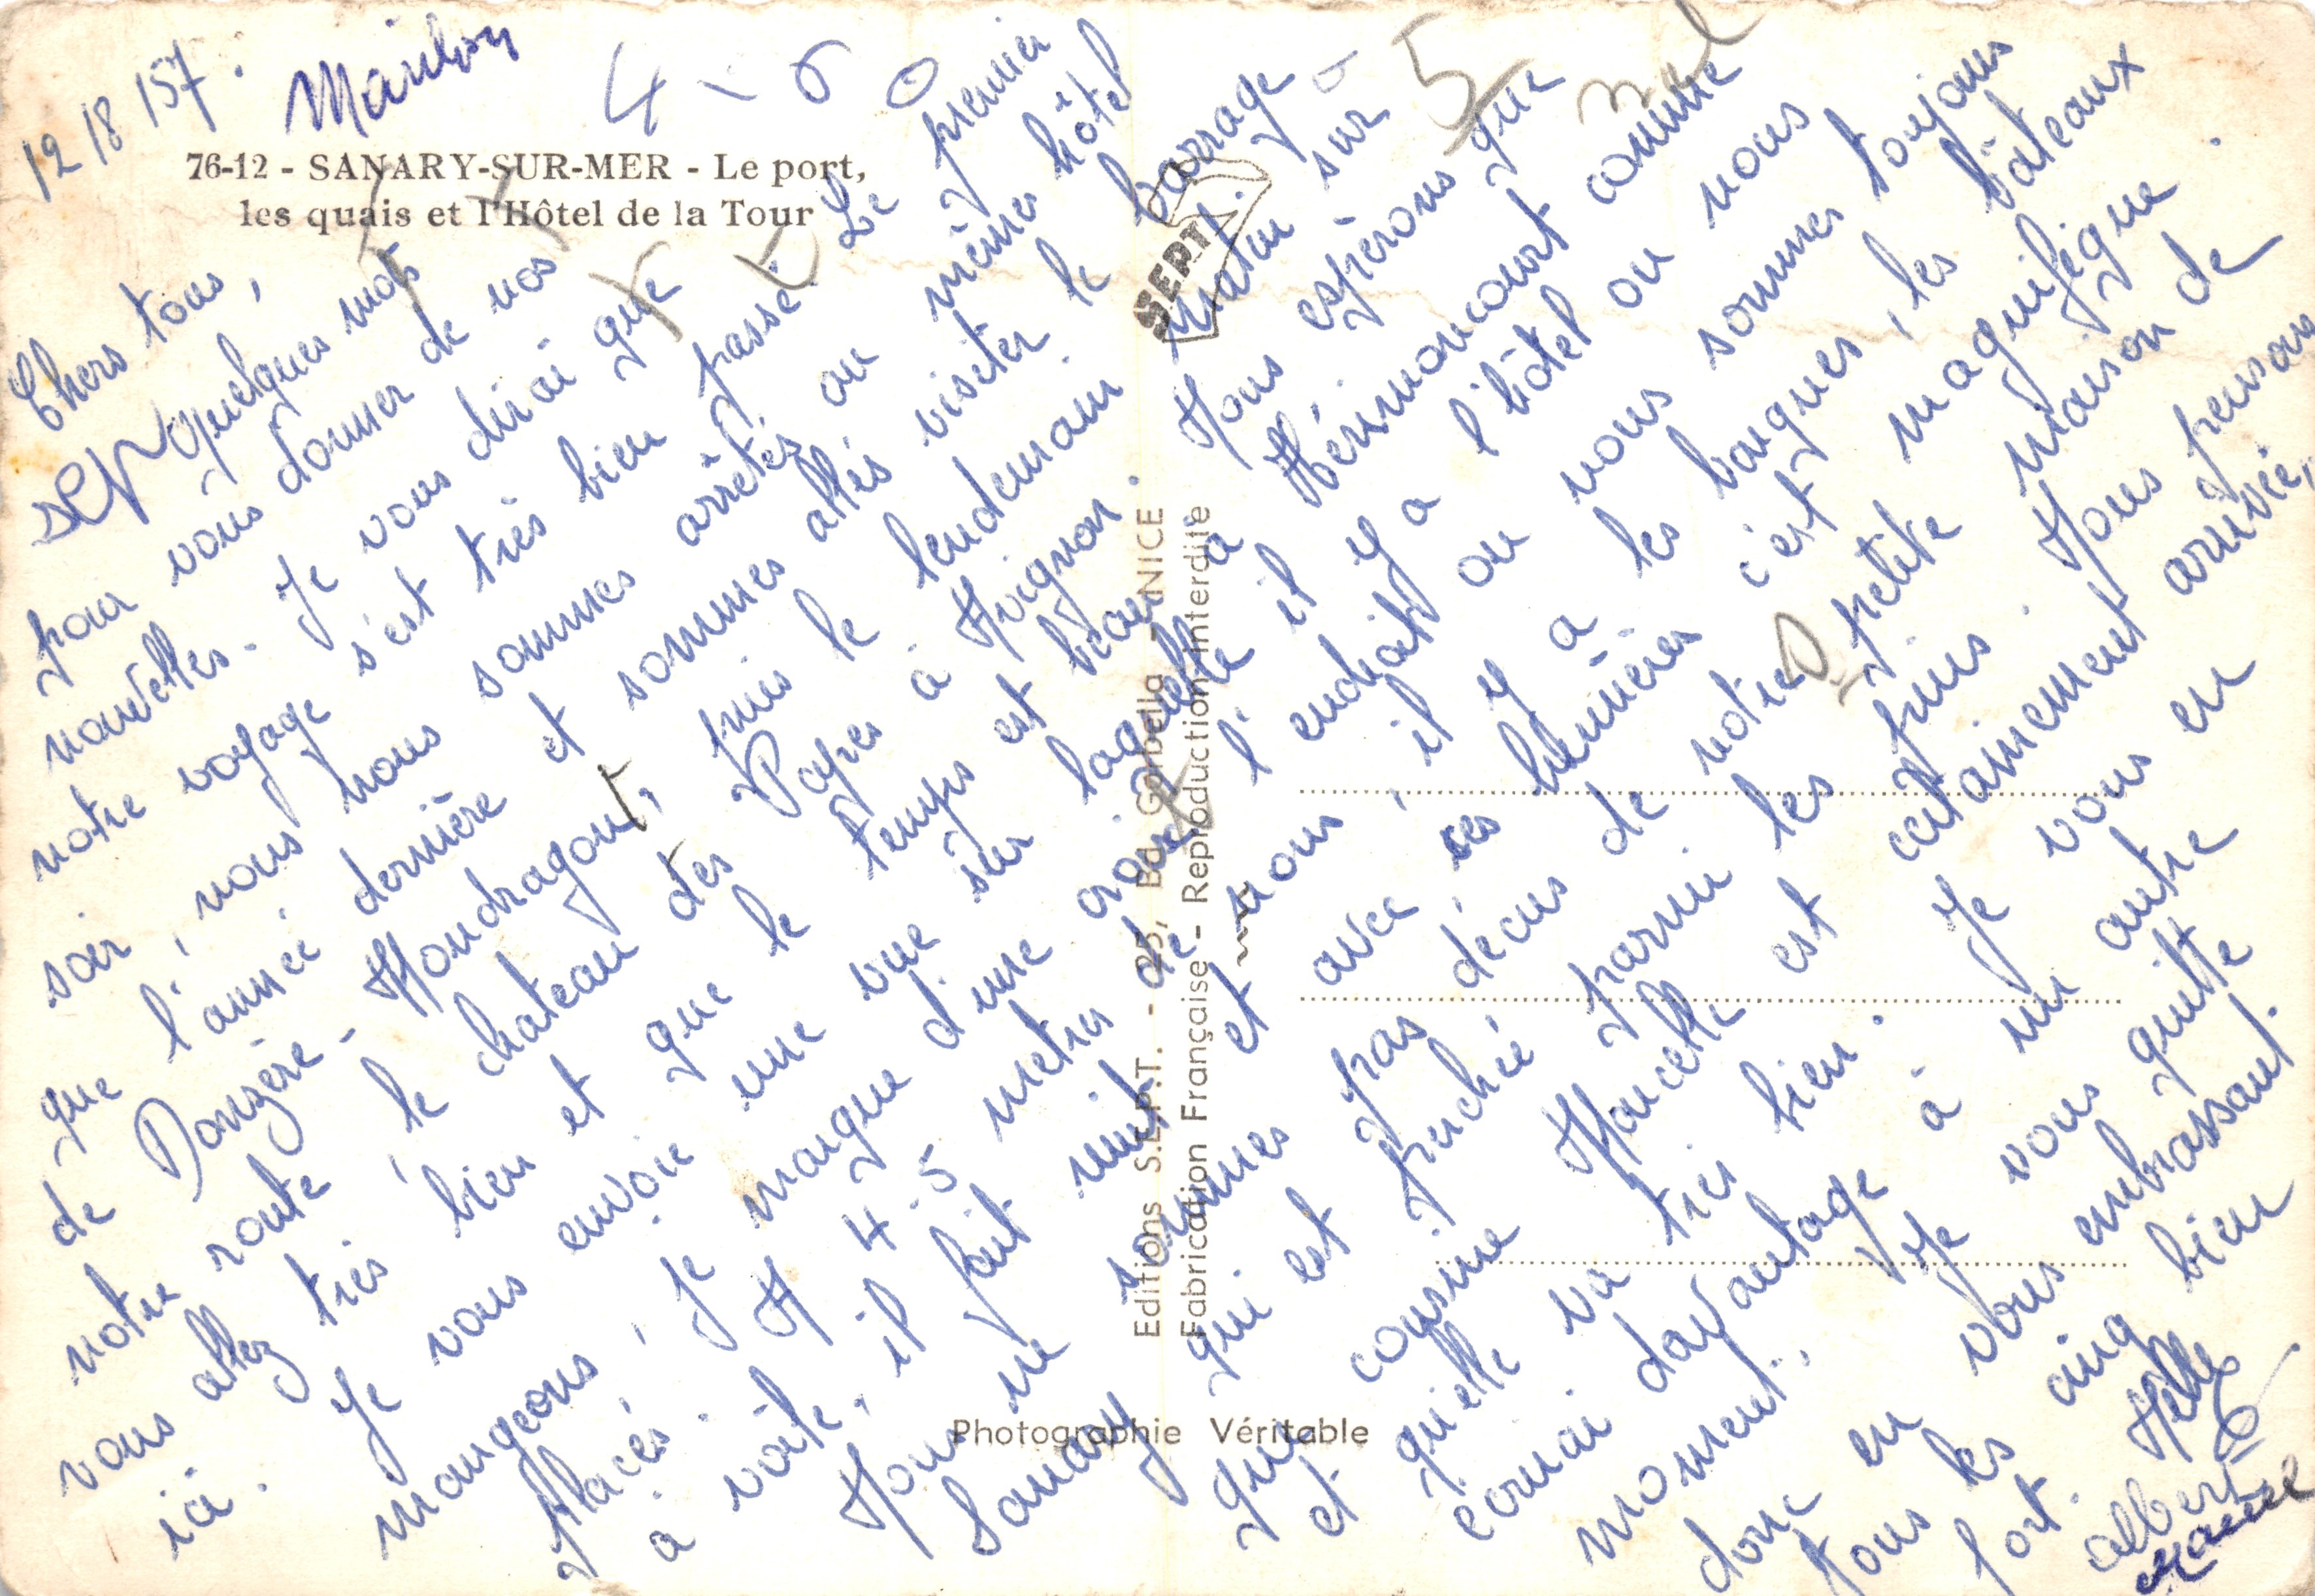 12/8/57.
Marilou
4-6
5
76-12 - SANARY-SUR-MER - Le port,
les quais et l'Hôtel de la Tour
Chers tous,
Quelques mots
pour vous donner de nos
nouvelles. Je vous dirai que
notre voyage s'est très bien passé. Le premier
soir, nous nous sommes arrêtés au même hôtel
que l'année dernière et sommes allés visiter le barrage
de Donzère-Mondragon, puis le lendemain matin sur
notre route, le chateau des Papes à Avignon. Nous espérons que
vous allez très bien et que le temps est beau à Hérimoncourt comme
ici. Je vous envoie une vue sur laquelle il y a l'hôtel ou nous
mangeons, je marque d'une croix l'endroit ou nous sommes toujours
placés. A 4.5 metres de nous, il y a les barques, les bâteaux
à voile, il fait nuit et avec ses lumières c'est magnifique.
Nous ne sommes pas décus de notre petite maison de
Sanary qui est perchée parmi les pins. Nous pensons
que cousine est certainement arrivée,
et qu'elle va très bien. Je vous en
davantage à un autre
moment. Je vous quitte
donc en vous embrassant
tous les cinq bien
fort.
Albert
SEPT
Editions S.E.P.T. - 25, Bd Gorbella - NICE
Fabrication Française - Reproduction interdite
Photographie Véritable